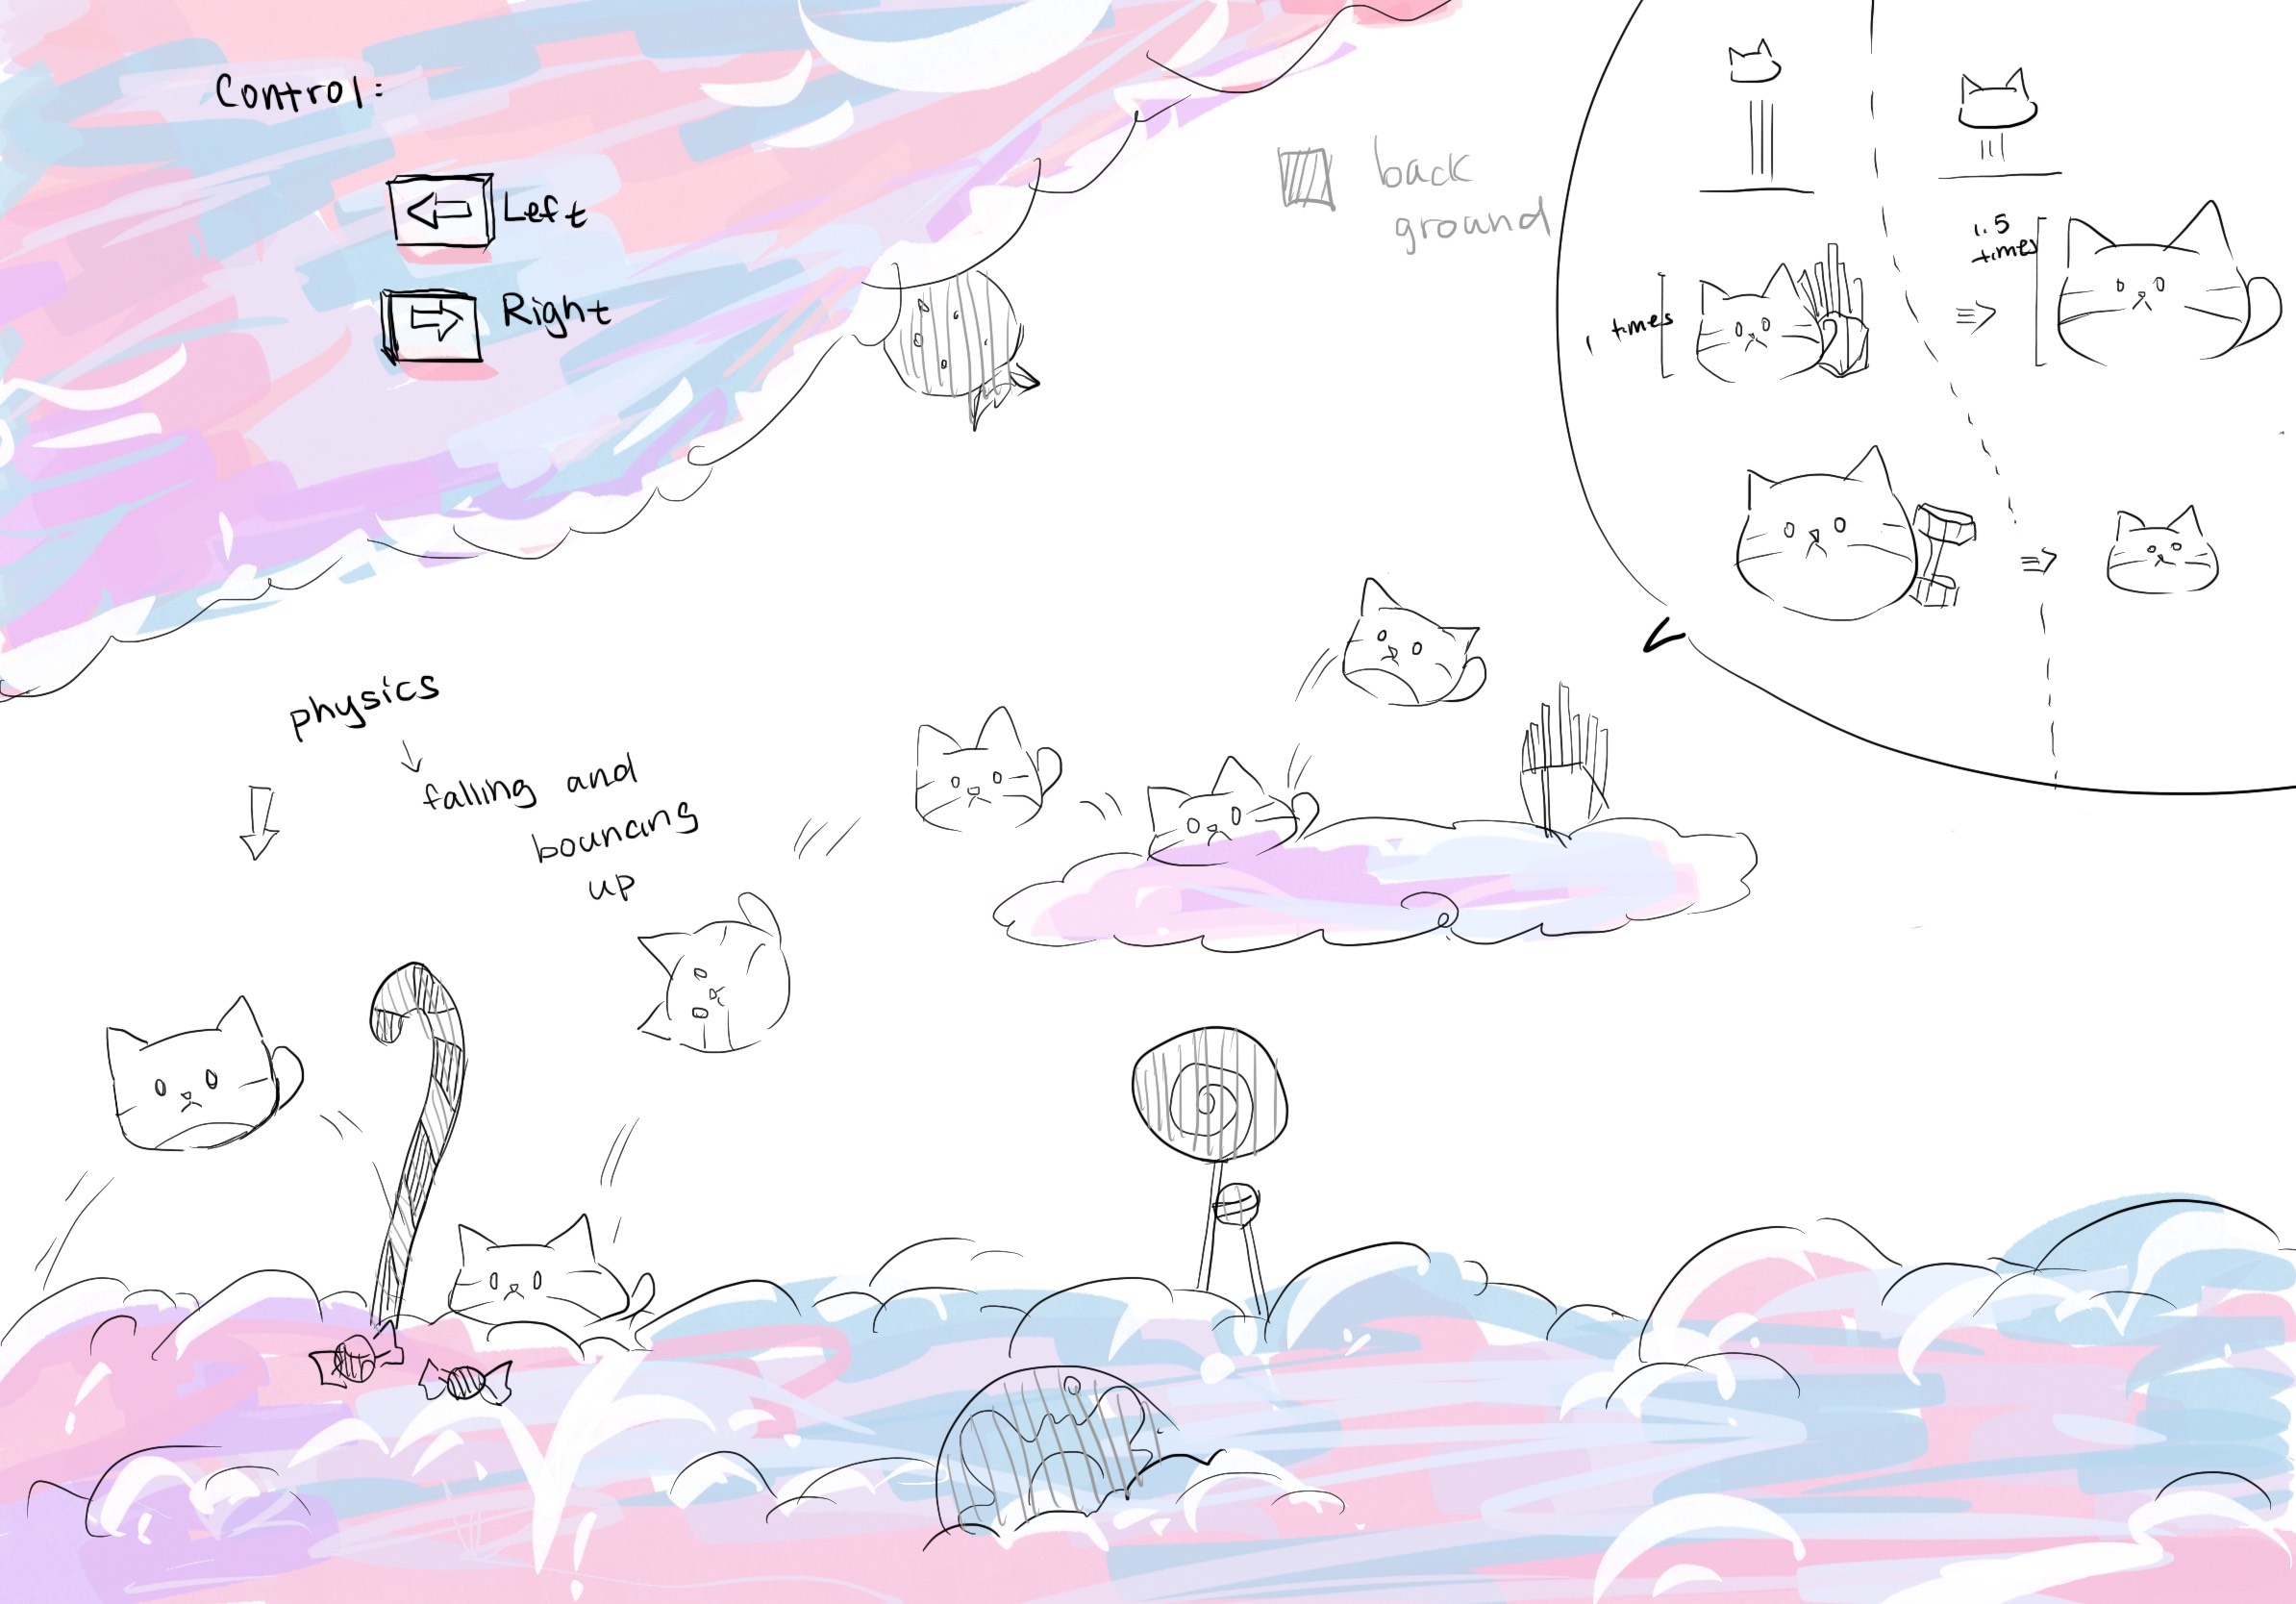 Control:
Left
Right
back
ground
1 times
1.5
times
physics
falling and
bouncing
up